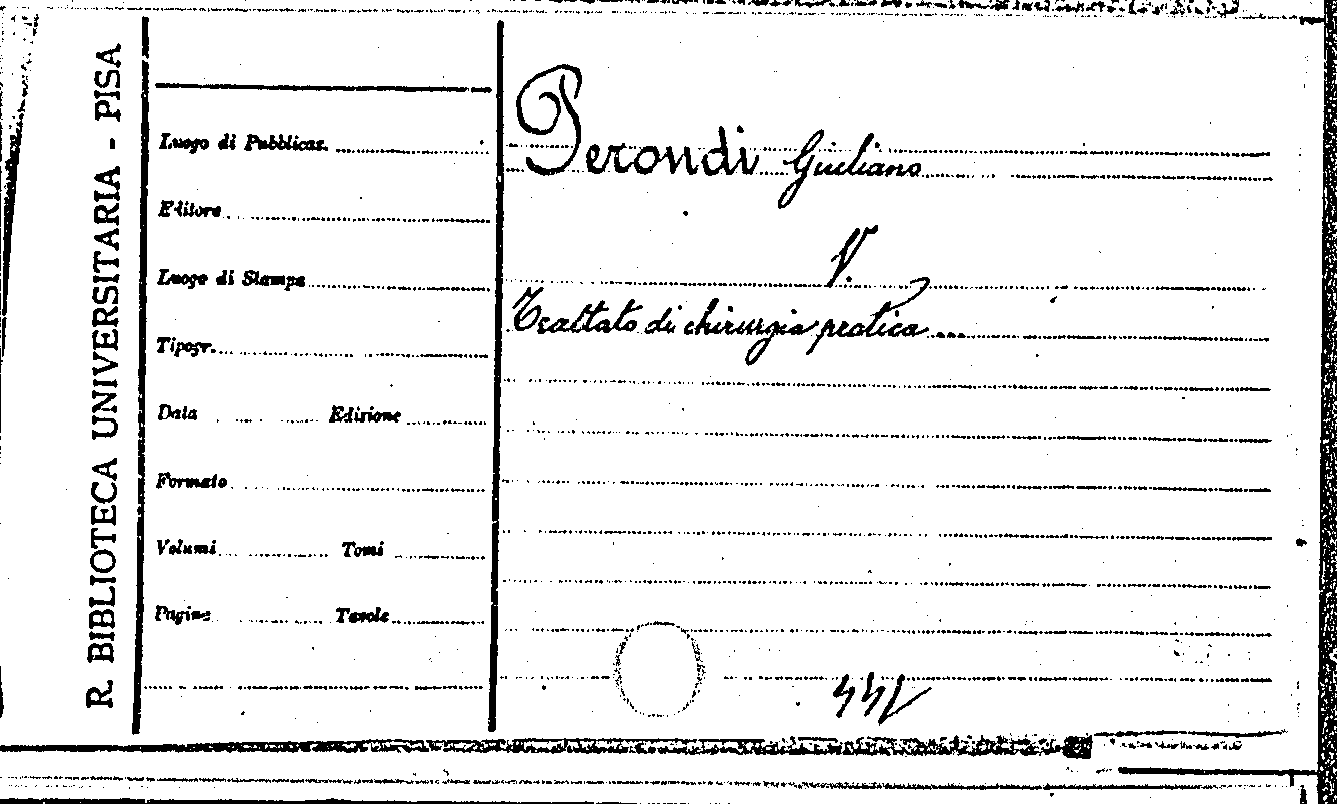 R. BIBLIOTECA UNIVERSITARIA - PISA
Luogo di Pubblicaz.
Editore
Luogo di Stampa
Tipogr.
Data Edizione
Formato
Volumi Tomi
Pagine Tavole
Perondi Giuliano
V.
Trattato di chirurgia pratica ...